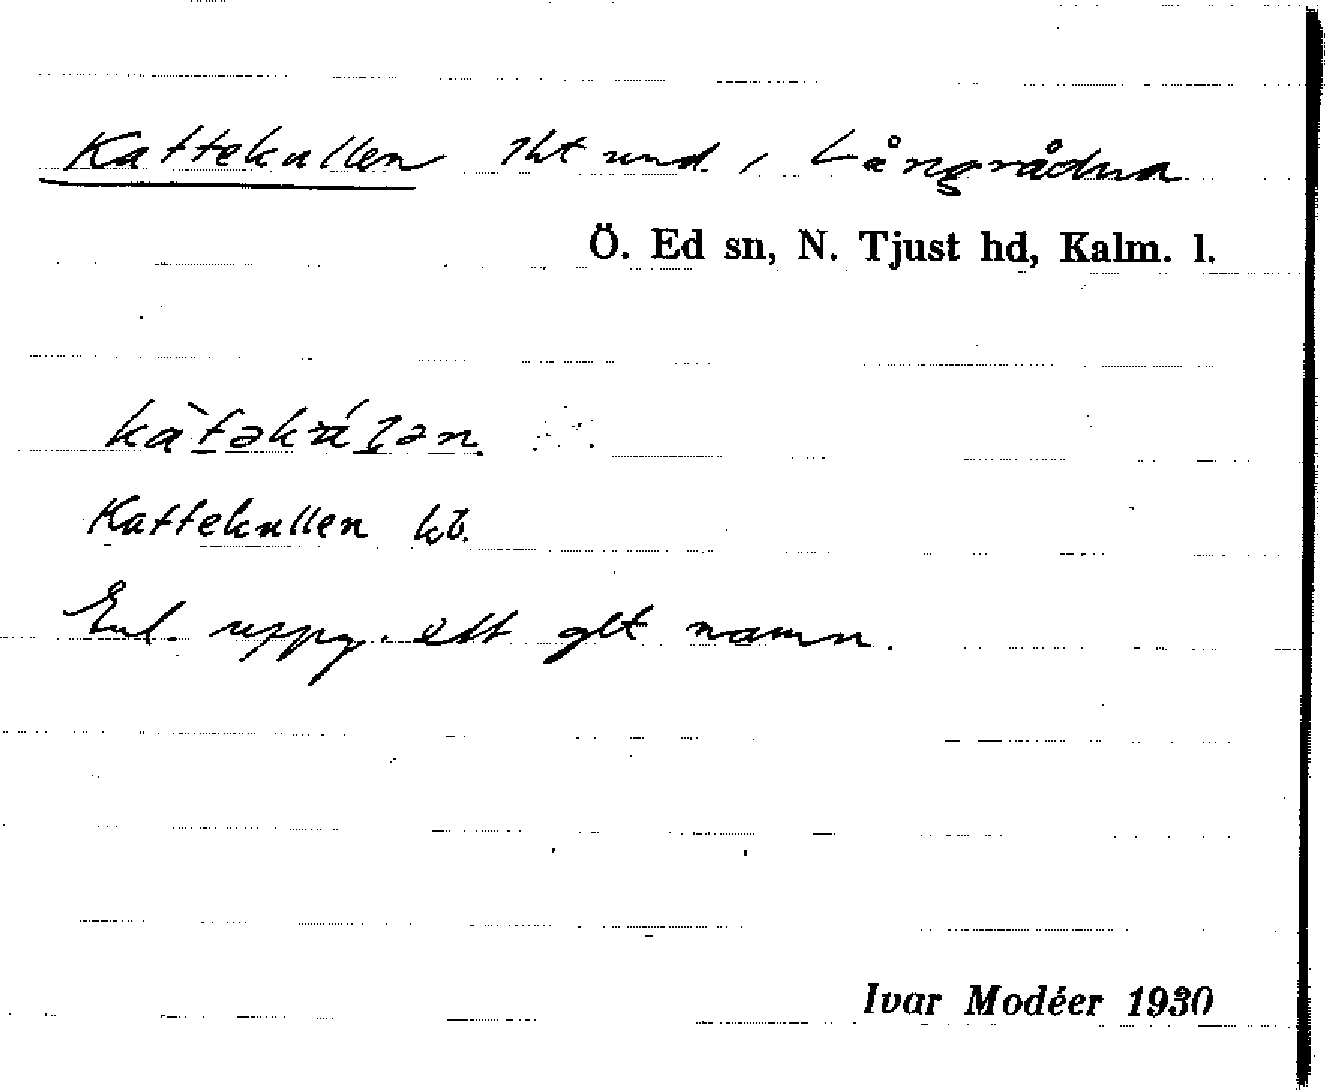 Kattekullen lht und. / Långrådna
Ö. Ed sn, N. Tjust hd, Kalm. l.
kàtəkúlən
Kattekullen kb.
Enl. uppg. ett glt namn.
Ivar Modéer 1930